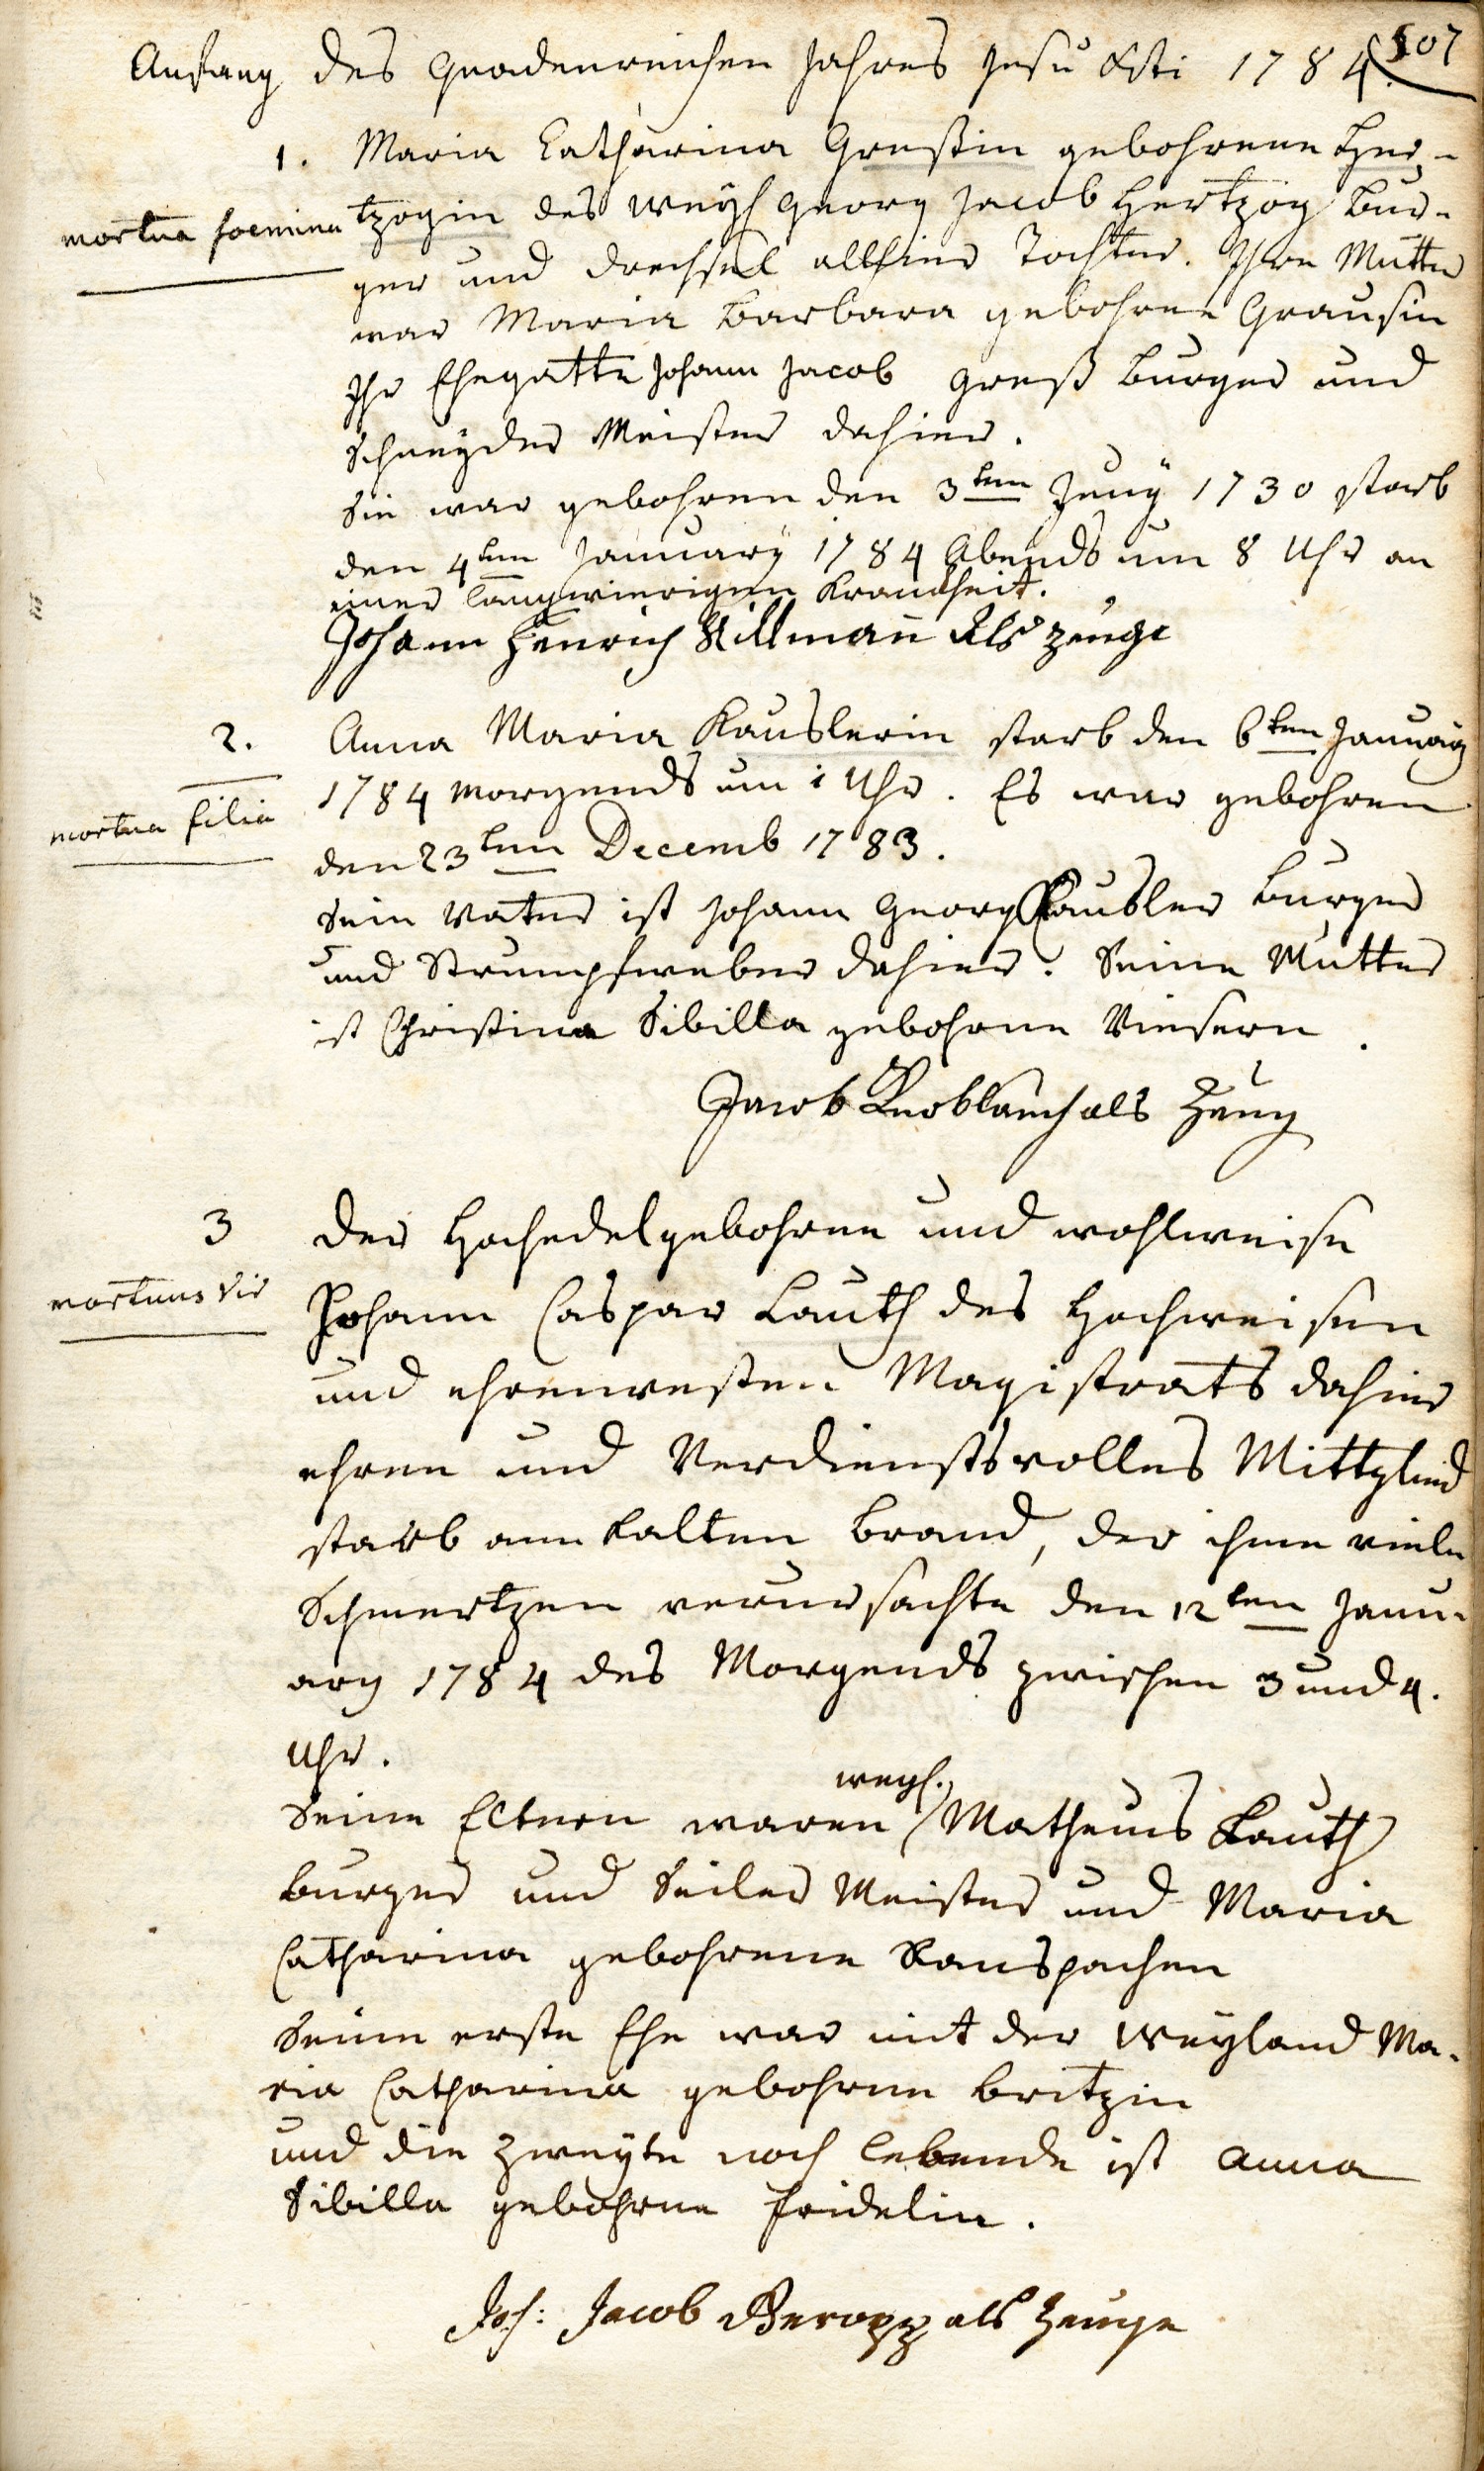 507
Anfang des Gnadenreichen Jahres Jesu Xsti 1784.
1. Maria Catharina Greßin gebohrene Her-
mortua foemina
tzogin des weyl Georg Jacob Hertzog Bur-
ger und Drechsel allhier Tochter. Ihre Mutter
war Maria Barbara gebohrne Grausin
Ihr Ehegatte Johann Jacob Greß Burger und
Schneyder Meister dahier.
Sie war gebohren den 3ten Juny 1730 starb
den 4ten January 1784 Abends um 8 Uhr an
einer langwierigen Kranckheit.
Johann Henrich Killmann Als zeuge
2. Anna Maria Kauslerin starb den 6ten January
mortua filia
1784 morgends um 1 Uhr. Es war gebohren
den 23ten Decemb 1783.
Sein Vater ist Johann Georg Kausler Burger
und Strumpfweber dahier. Seine Mutter
ist Christina Sibilla gebohrne Viesern.
Jacob Knoblauch als Zeug
3 Der Hochedelgebohrne und wohlweise
mortuus vir
Johann Caspar Lauth des Hochweisen
und ehrenvesten Magistrats dahier
ehren und Verdienstsvolles Mittglied
starb am kalten Brand, der ihme viele
Schmertzen verursachte den 12ten Janu-
ary 1784 des Morgends zwischen 3 und 4.
Uhr.
weyl.
Seine Eltern waren Matheus Lauth
Burger und Seiler Meister und Maria
Catharina gebohrene Rauspachen
Seine erste Ehe war mit der Weyland Ma-
ria Catharina gebohrne Britzin
und die zweyte noch lebende ist Anna
Sibilla gebohrne Fridelin.
Joh: Jacob Beropp als Zeuge